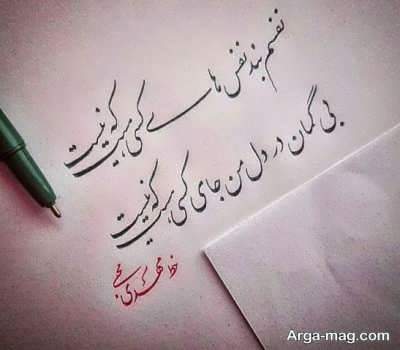 نفسم بند نفس های کسی هست که نیست
بی گمان در دل من جای کسی هست که نیست
Arga-mag.com